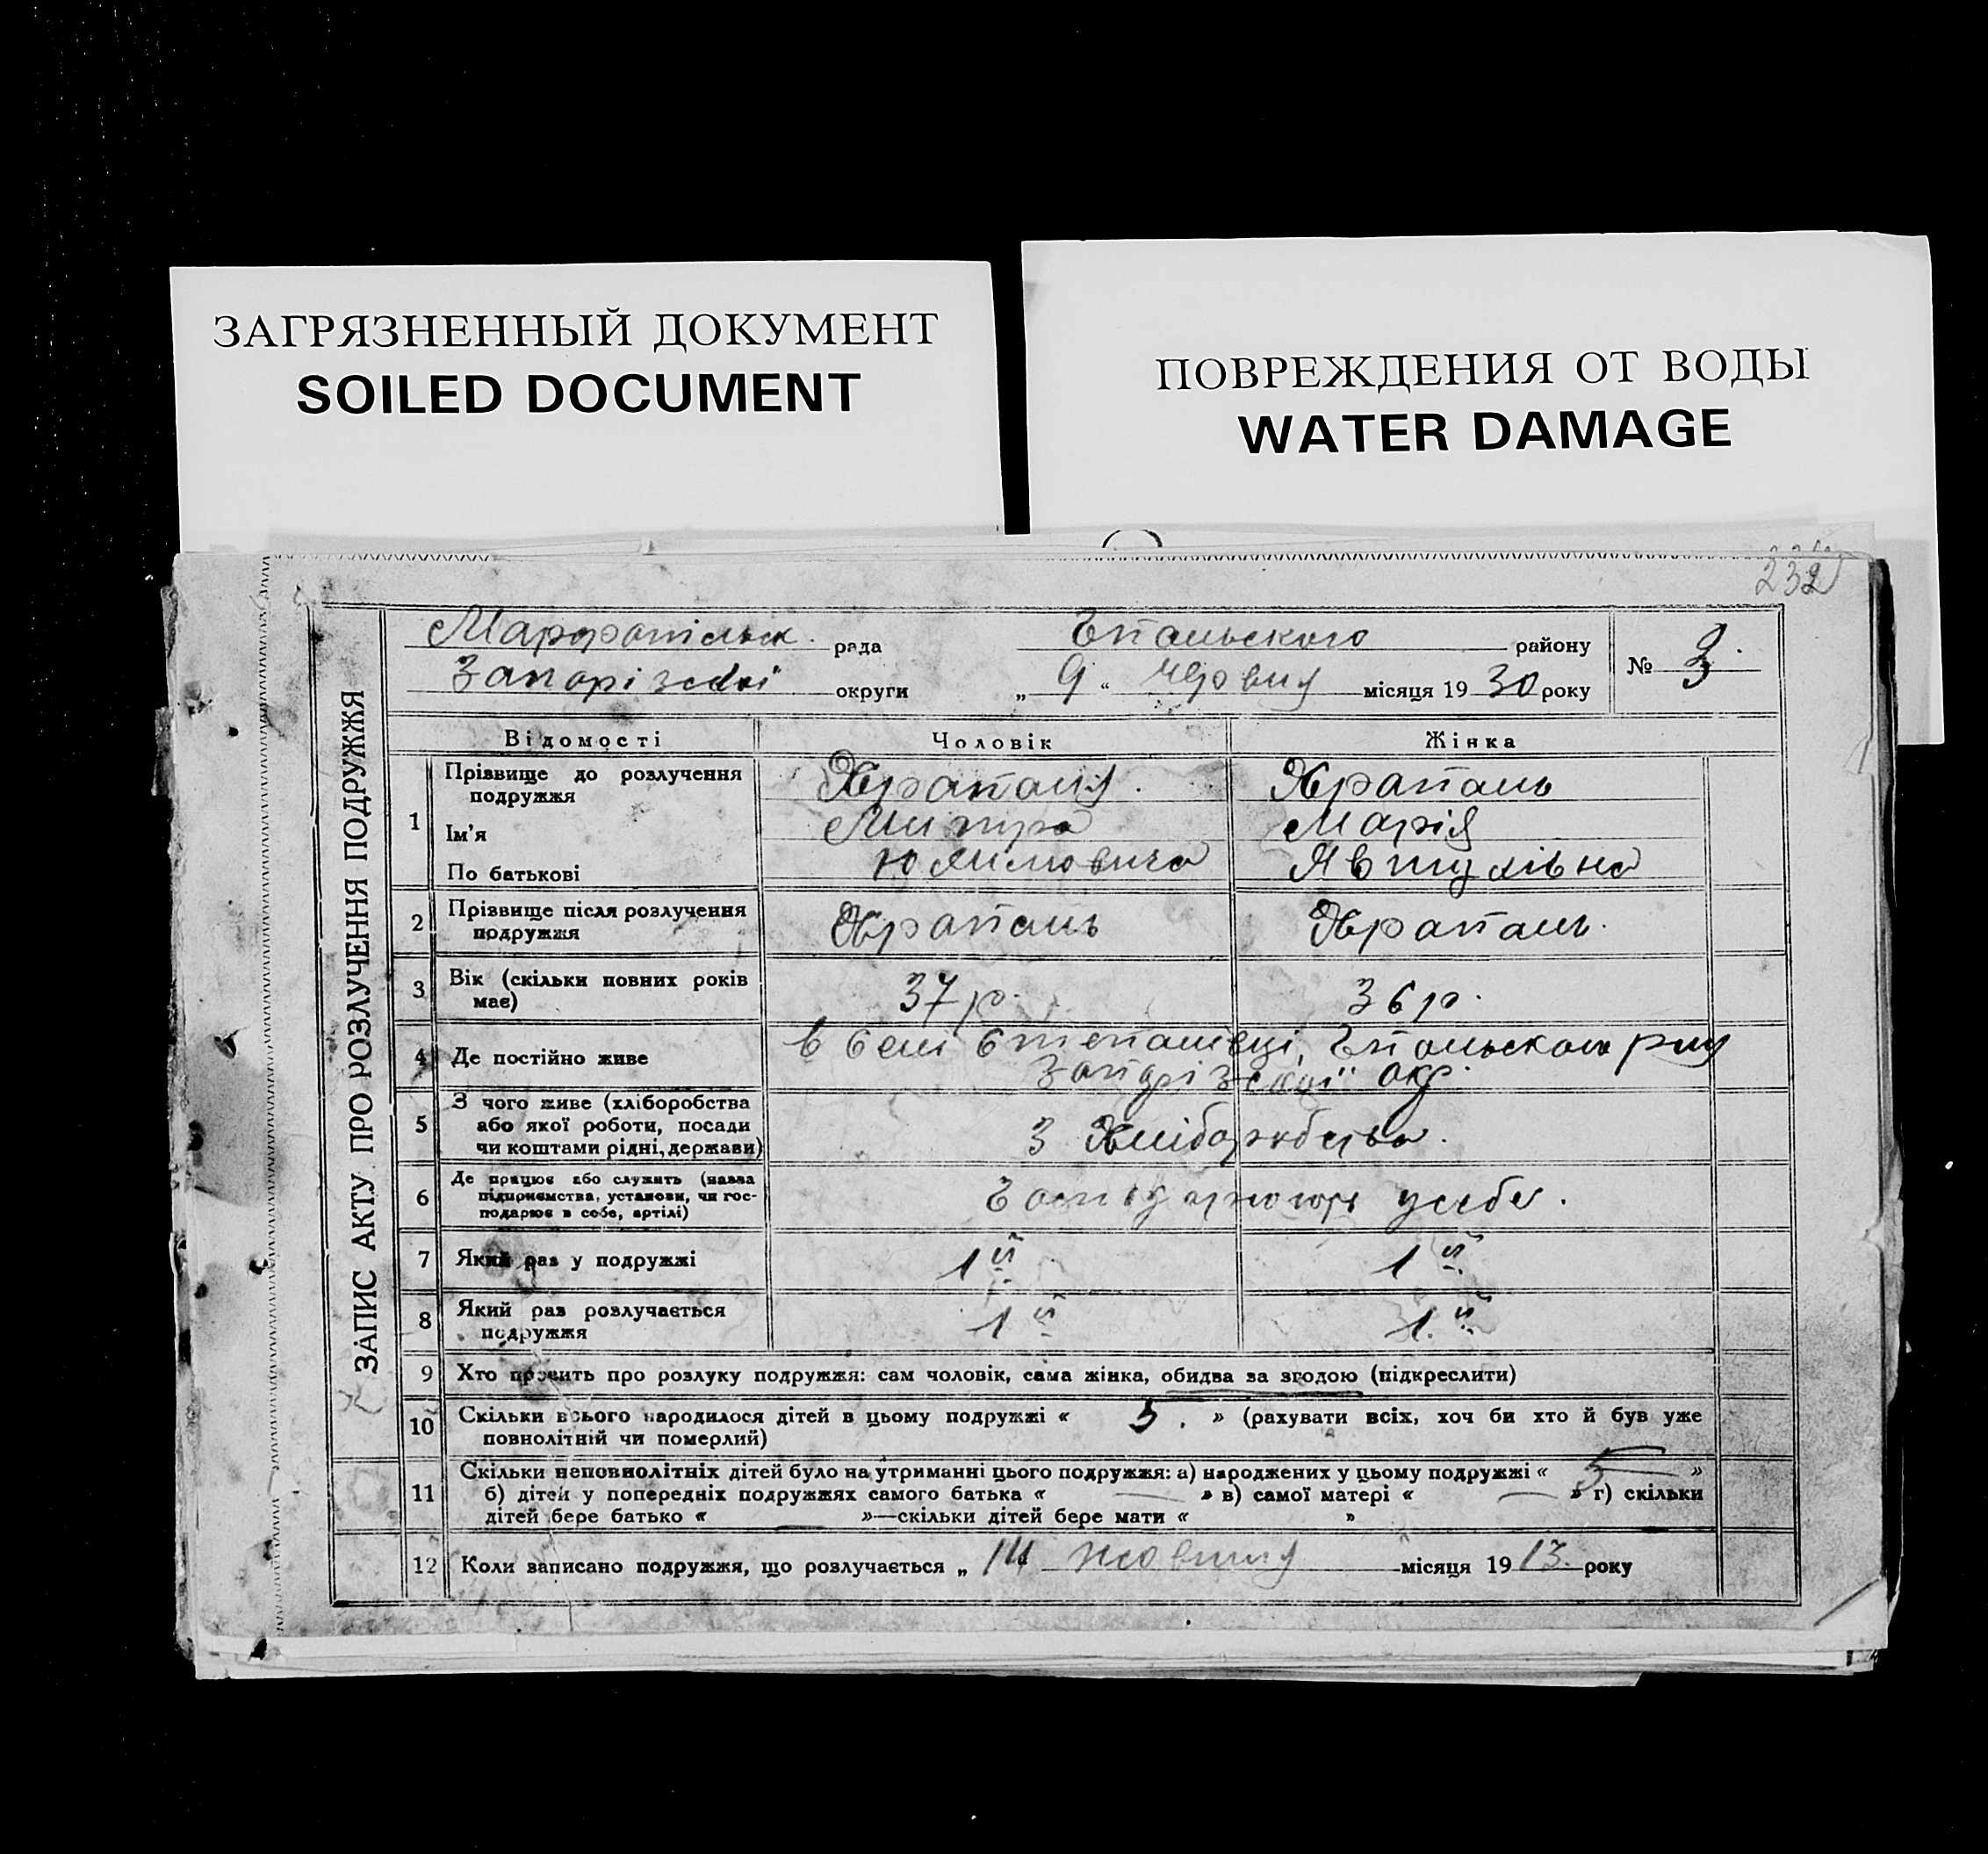 ЗАГРЯЗНЕННЫЙ ДОКУМЕНТ
SOILED DOCUMENT
ПОВРЕЖДЕНИЯ ОТ ВОДЫ
WATER DAMAGE
232
ЗАПИС АКТУ ПРО РОЗЛУЧЕННЯ ПОДРУЖЖЯ
Марфопільск. рада Гпільского району № 3
Запорізскої округи „ 9 “ місяця 19 30 року
Відомості Чоловік Жінка
1 Прізвище до розлучення подружжя Храпаль
Ім'я Митро Марія
По батькові Явтухівна
2 Прізвище після розлучення подружжя Храпаль Храпаль.
3 Вік (скільки повних років має) 37 р. 36 р.
4 Де постійно живе в селі Степанівці,
Запорізскої окр.
5 З чого живе (хліборобства або якої роботи, посади чи коштами рідні, держави) З Хліборобства.
6 Де працює або служить (назва підприємства, установи, чи господарює в себе, артілі) у себе.
7 Який раз у подружжі 1й 1й
8 Який раз розлучається подружжя 1й 1й
9 Хто просить про розлуку подружжя: сам чоловік, сама жінка, обидва за згодою (підкреслити)
10 Скільки всього народилося дітей в цьому подружжі « 5. » (рахувати всіх, хоч би хто й був уже
повнолітній чи померлий)
11 Скільки неповнолітніх дітей було на утриманні цього подружжя: а) народжених у цьому подружжі « 5 »
б) дітей у попередніх подружжях самого батька « — » в) самої матері « — » г) скільки
дітей бере батько « »—скільки дітей бере мати « »
12 Коли записано подружжя, що розлучається „ 14 жовтня місяця 19 13. року